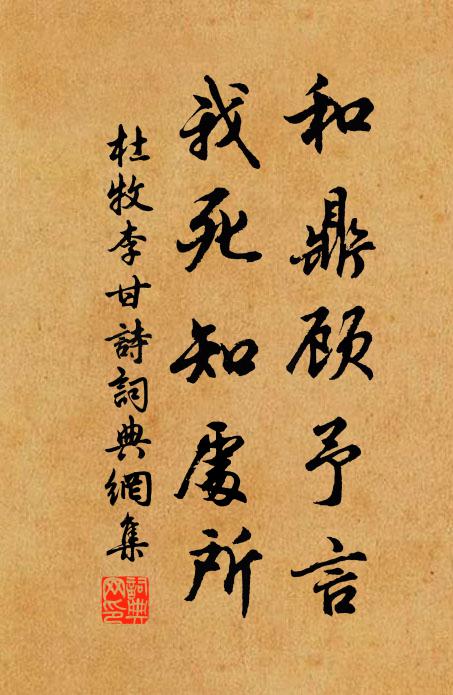 和鼎顾予言
我死知處所
杜牧李甘詩詞典網集
詞典网印